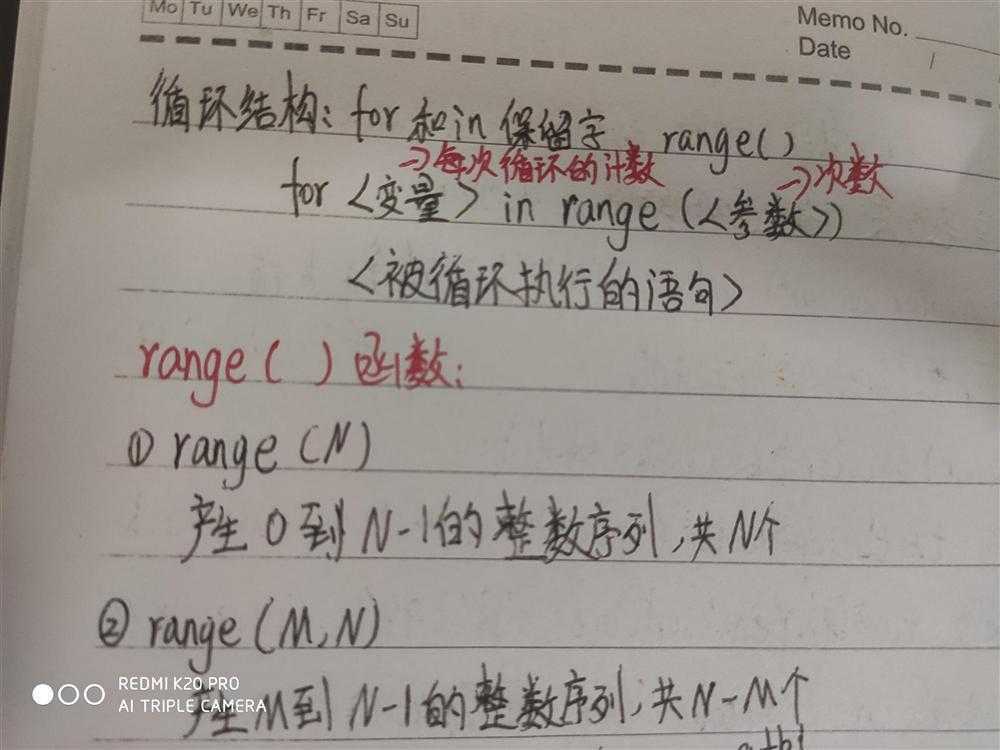 Mo Tu We Th Fr Sa Su
Memo No.
Date /
循环结构: for 和 in 保留字 range()
→每次循环的计数 →次数
for <变量> in range (<参数>)
<被循环执行的语句>
range ( ) 函数:
① range (N)
产生 0 到 N-1 的整数序列, 共 N 个
② range (M, N)
产生 M 到 N-1 的整数序列, 共 N-M 个
REDMI K20 PRO
AI TRIPLE CAMERA